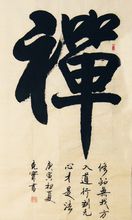 禪
修無我方
入道行到无
心才是法
庚寅初夏
書